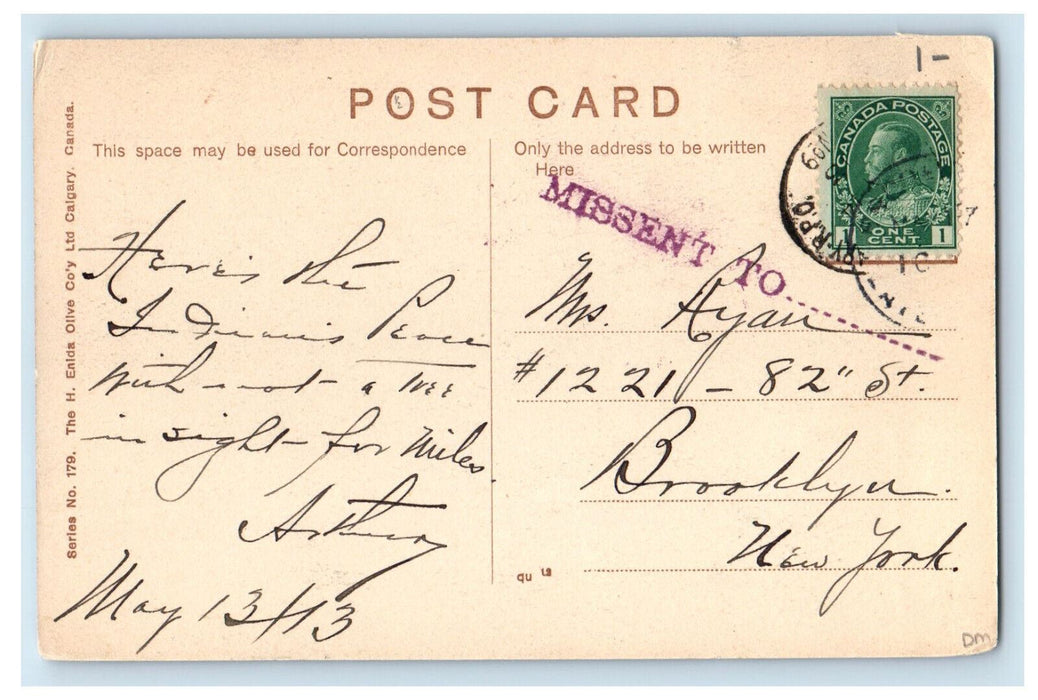 POST CARD
This space may be used for Correspondence
Only the address to be written
Here
Series No. 179. The H. Enida Olive Co'y Ltd Calgary. Canada.
CANADA POSTAGE
ONE
CENT
1
R.P.O.
1-
MISSENT TO
Here's the
Indians Peace
With not a tree
in sight for miles.
Arthur
May 13/13
Mrs. Ryan
#1221 - 82" St.
Brooklyn.
New York.
qu
DM